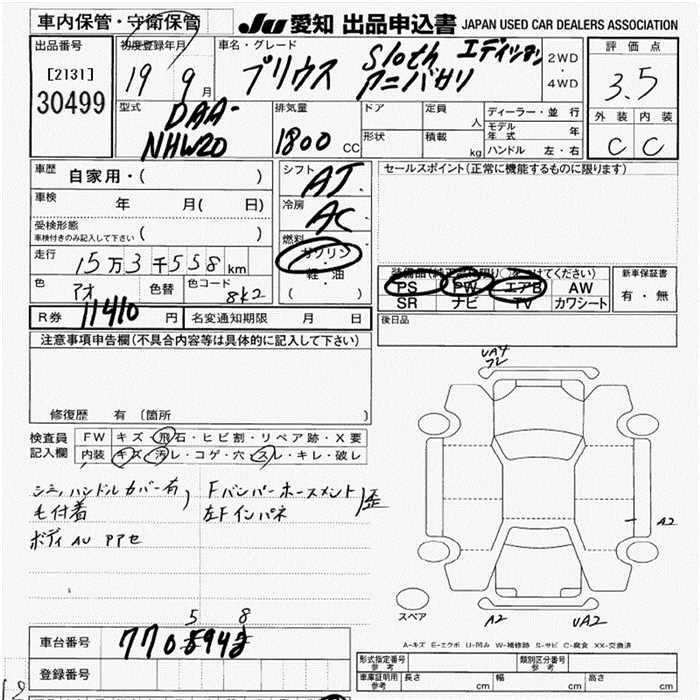 車内保管・守衛保管
JU 愛知 出品申込書 JAPAN USED CAR DEALERS ASSOCIATION
出品番号
[2131]
30499
初度登録年月
19 9月
車名・グレード
プリウス S10th エディション
アニバサリ
2WD
・
4WD
評価点
3.5
外装 内装
C C
型式
DAA-
NHW20
排気量
1800 CC
ドア
形状
定員 人
積載 kg
ディーラー・並行
モデル年式 年
ハンドル 左・右
車歴
自家用・( )
車検 年 月( 日)
受検形態
車検付きのみ記入して下さい ( )
走行 15万3千558km
色 アオ 色替 色コード 8K2
シフト AT
冷房 AC
燃料
ガソリン
・
軽油
( )
セールスポイント(正常に機能するものに限ります)
装備品(純正品に限り○をつけてください)
PS PW エアB AW
SR ナビ TV カワシート
新車保証書
有・無
R券 11410 円 名変通知期限 月 日
後日品
注意事項申告欄(不具合内容等は具体的に記入して下さい)
修復歴 有 〔箇所 〕
検査員
記入欄
FW キズ・飛石・ヒビ割・リペア跡・X要
内装 キズ・汚レ・コゲ・穴・スレ・キレ・破レ
シミ、ハンドルカバー有,
毛付着
ボディ AU PPセ
Fバンパーホースメント
左Fインパネ
歪
UA4
フレ
A2
A2 UA2
スペア
A-キズ E-エクボ U-凹み W-補修跡 S-サビ C-腐食 XX-交換済
車台番号 7705942
5 8
登録番号
形式指定番号
参考
類別区分番号
参考
車庫証明用
参考
長さ cm 幅 cm 高さ cm